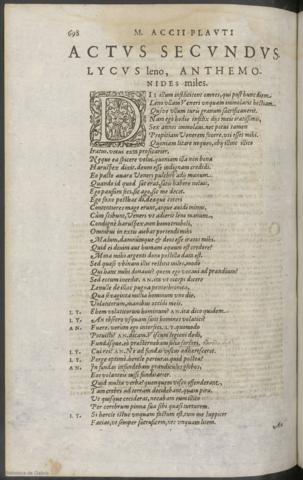 698 M. ACCII PLAVTI
ACTVS SECVNDVS
LYCVS leno, ANTHEMO-
NIDES miles.
DII illum infelicitent omnes, qui post hunc diem
Leno ullam Veneri unquam immolarit hostiam
Quive ullum turis granum sacrificaverit.
Nam ego hodie infelix dis meis iratissimis,
Sex agnos immolavi, nec potui tamen
Propitiam Venerem facere, uti esset mihi.
Quoniam litare nequeo, abij illinc ilico
Iratus, votui exta prosicarier.
Neque ea
Haruspex
Eo pacto avarae Veneri pulchre
Quando id quod sat erat, satis habere noluit,
Ego pausam feci, sic ago, sic me decet.
Ego faxo posthac dij, deaeque ceteri
Contentiores mage erunt, atque avidi minus,
Cum scibunt, Veneri ut adierit leno manum,
Condigne haruspex, non homo trioboli,
Omnibus in extis aiebat portendi mihi
Malum, damnumque & deos esse iratos mihi.
Quid ei divini aut humani aequum est credere?
Mina mihi argenti dono postilla data est.
Sed quaeso ubinam illic restitit miles, modo
Qui hanc mihi donavit? quem ego vocavi ad prandium?
Sed eccum incedit. AN. ita ut occepi dicere
Lenulle de illac pugna pentethronica,
Qua sexaginta millia hominum uno die,
Volaticorum, manibus occidi meis.
LY. Ehem volaticorum hominum? AN. ita dico quidem.
LY. An obsecro usquam sunt homines volatici?
AN. Fuere. verum ego interfeci. LY. quomodo
Potuisti? AN. dicam. Viscum legioni dedi,
Fundasque, eo praesternebant folia farferi.
LY. Cui rei? AN. Ne ad fundas viscus adhaeresceret.
LY. Perge optime hercle peieras. quid postea?
AN. In fundas visci indebant grandiculos globos,
Eos volanteis iussi fundarier.
Quid multa verba? quemquem visco offenderant,
Tam crebri ad terram decidebant, quam pira.
Ut quisque ceciderat, necabam eum ilico
Per cerebrum pinna sua sibi quasi turturem.
LY. Si hercle istuc unquam factum est, tum me Iuppiter
Faciat, ut semper sacruficem, nec unquam litem.
An